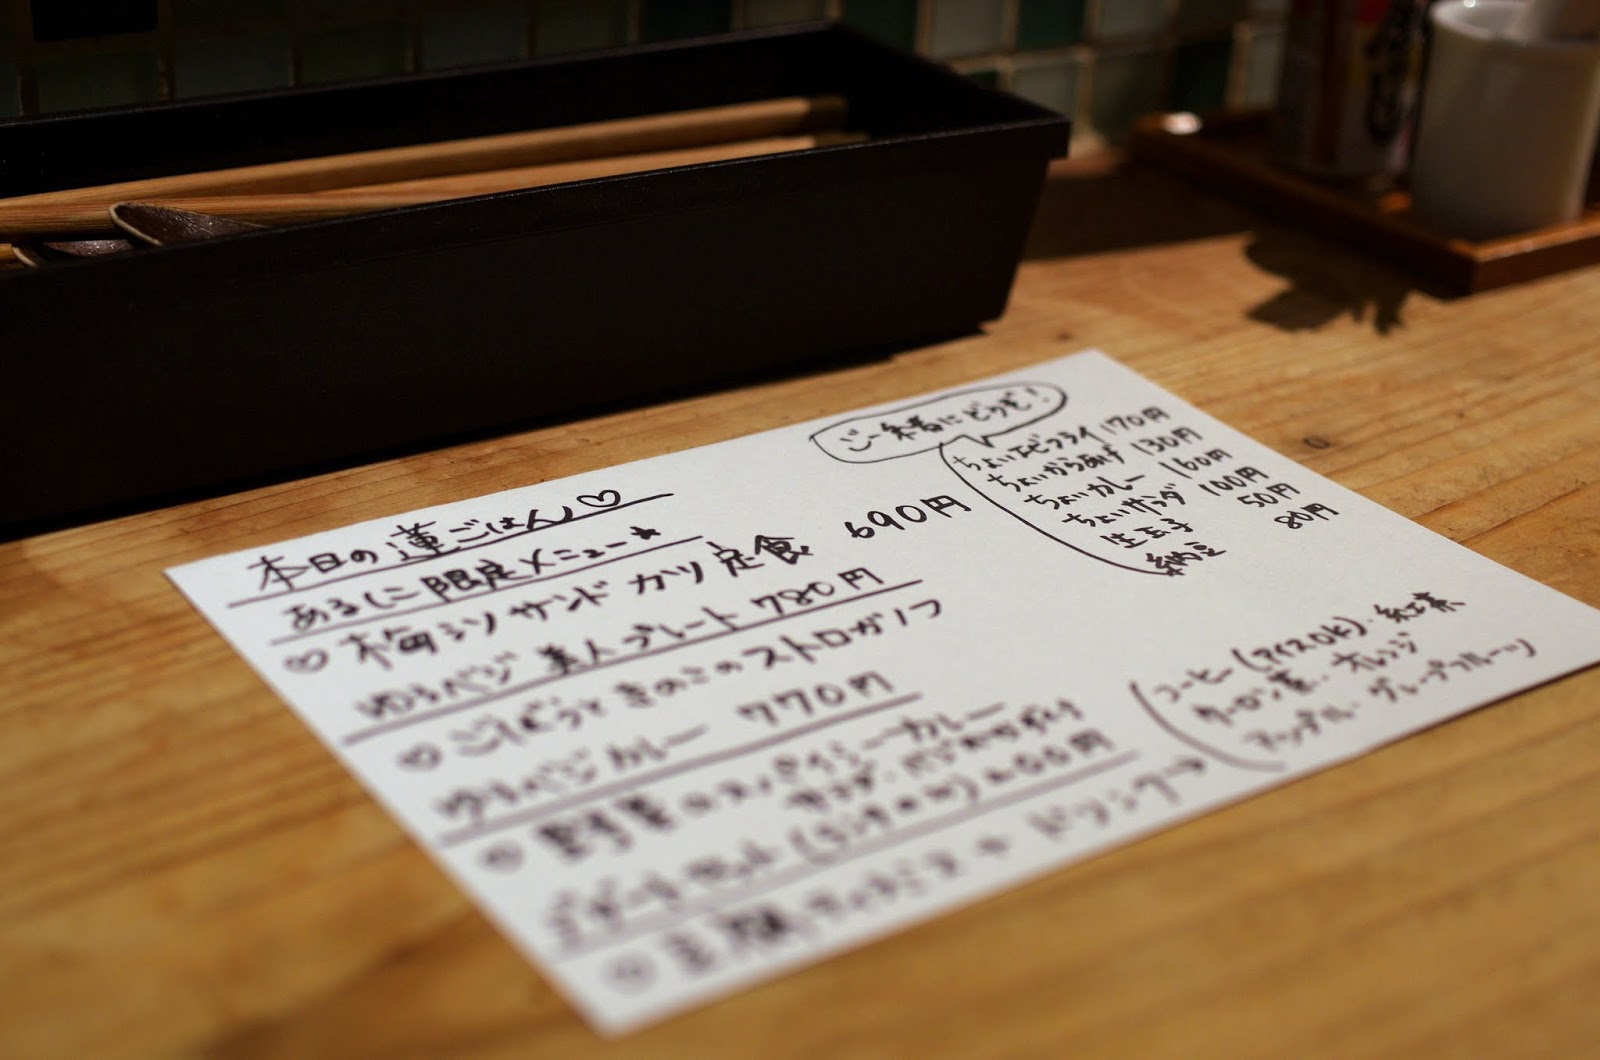 本日の蓮ごはん♡
あるじこ限定メニュー★
♡梅シソサンドカツ定食 690円
ゆるベジ 美人プレート 780円
♡ごぼうときのこのストロガノフ
ゆるベジカレー 770円
♡野菜のスパイシーカレー
サラダ・
デザートセット(ランチのみ) 円
♡ + ドリンク→
(コーヒー(アイスOK)・紅茶
ウーロン茶・オレンジ
アップル・グレープフルーツ
ご一緒にどうぞ!
ちょいエビフライ 170円
ちょいからあげ 130円
ちょいカレー 160円
ちょいサラダ 100円
生玉子 50円
納豆 80円